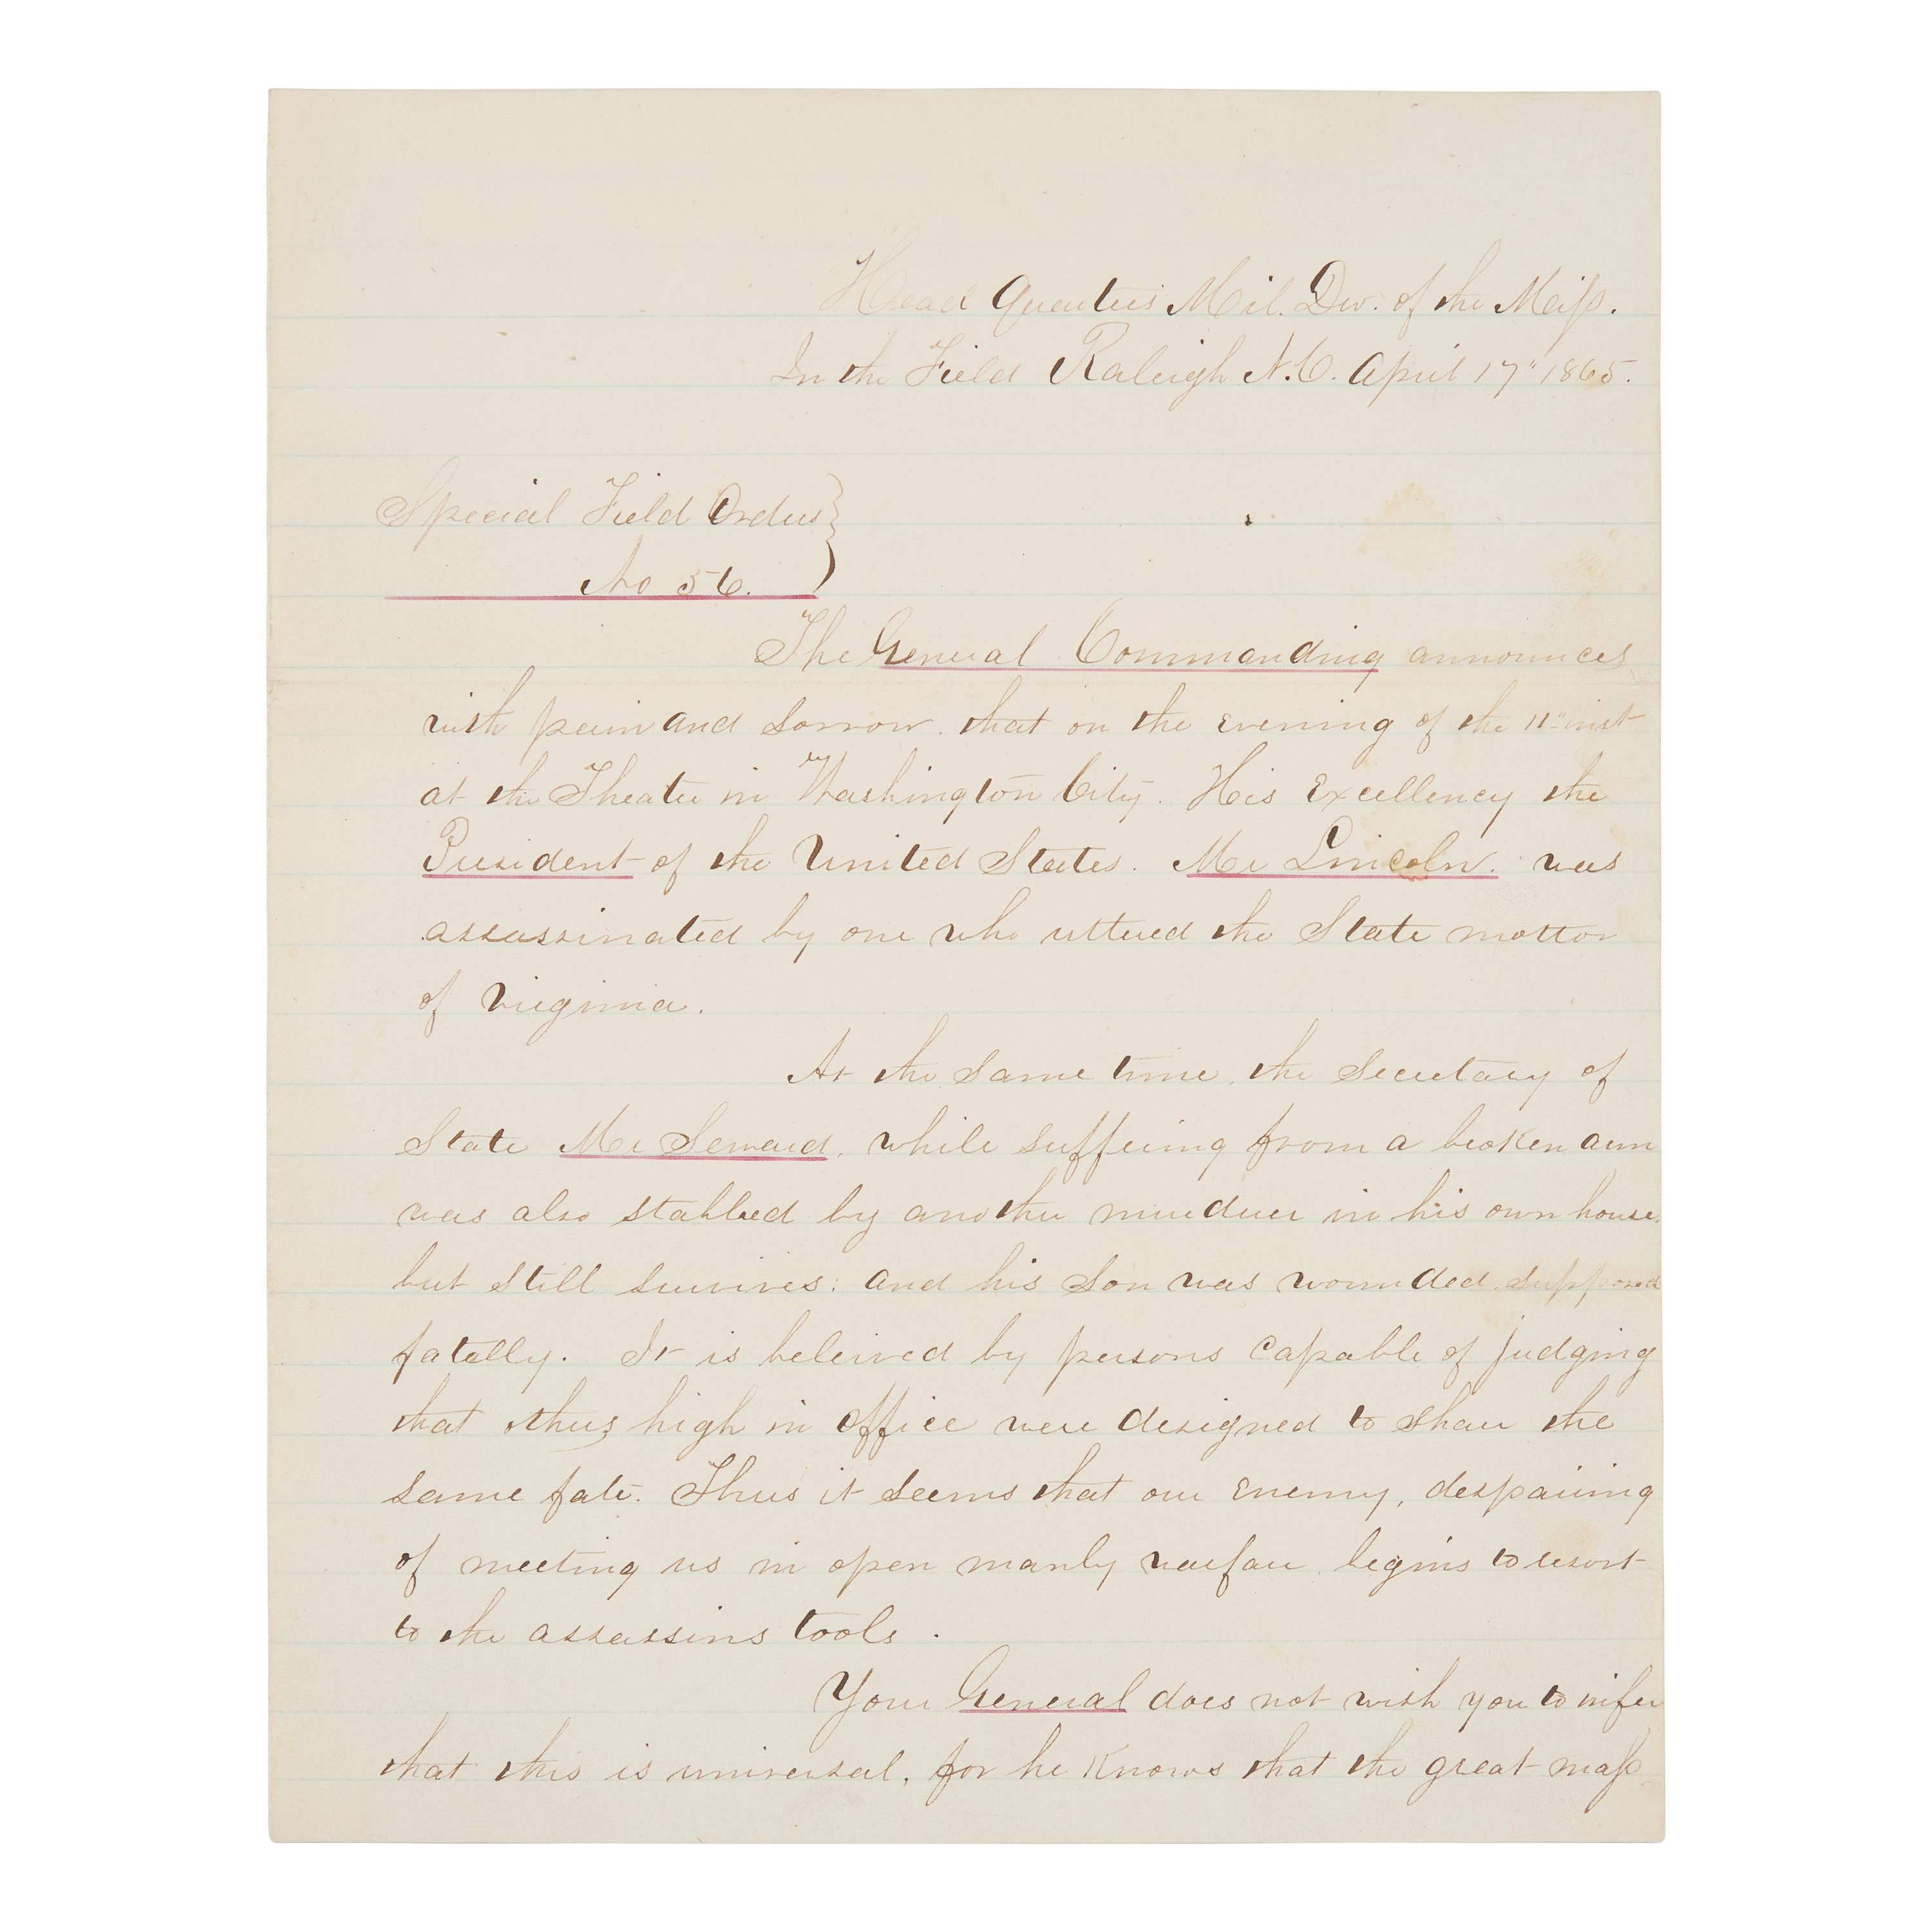 Head Quarters Mil. Div. of the Miss.
In the Field Raleigh N.C. April 17" 1865.
Special Field Orders }
No 56. )
The General Commanding announces
with pain and sorrow. that on the evening of the 11" inst
at the Theater in Washington City. His Excellency the
President of the United States. Mr Lincoln. was
assassinated by one who uttered the State motto
of Virginia.
At the same time, the Secretary of
State Mr Seward, while suffering from a broken arm
was also stabbed by another murderer in his own house,
but still survives; and his son was wounded, supposed
fatally. It is beleived by persons capable of judging
that others high in office were designed to share the
same fate. Thus it seems that our enemy, despairing
of meeting us in open manly warfare begins to resort
to the assassins tools.
Your General does not wish you to infer
that this is universal, for he knows that the great mass